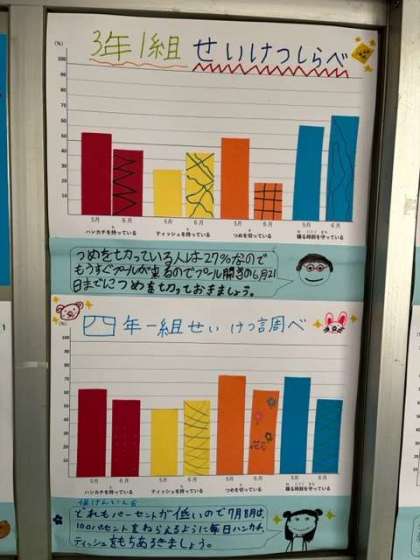 3年1組 せいけつしらべ
(%)
100
90
80
70
60
50
40
30
20
10
5月 6月 5月 6月 5月 6月 5月 6月
ハンカチを持っている ティッシュを持っている つめを切っている 寝る時刻を守っている
つめを切っている人は27%なので
もうすぐプールが来るのでプール開きの6月21
日までにつめを切っておきましょう。
(%)
四年一組せいけつ調べ
100
90
80
70
60
50
40
30
20
10
5月 6月 5月 6月 5月 6月 5月 6月
ハンカチを持っている ティッシュを持っている つめを切っている 寝る時刻を守っている
どれもパーセントが低いので7月8月は
100パーセントをねらえるように毎日ハンカチ、
ティッシュをもちあるきましょう。